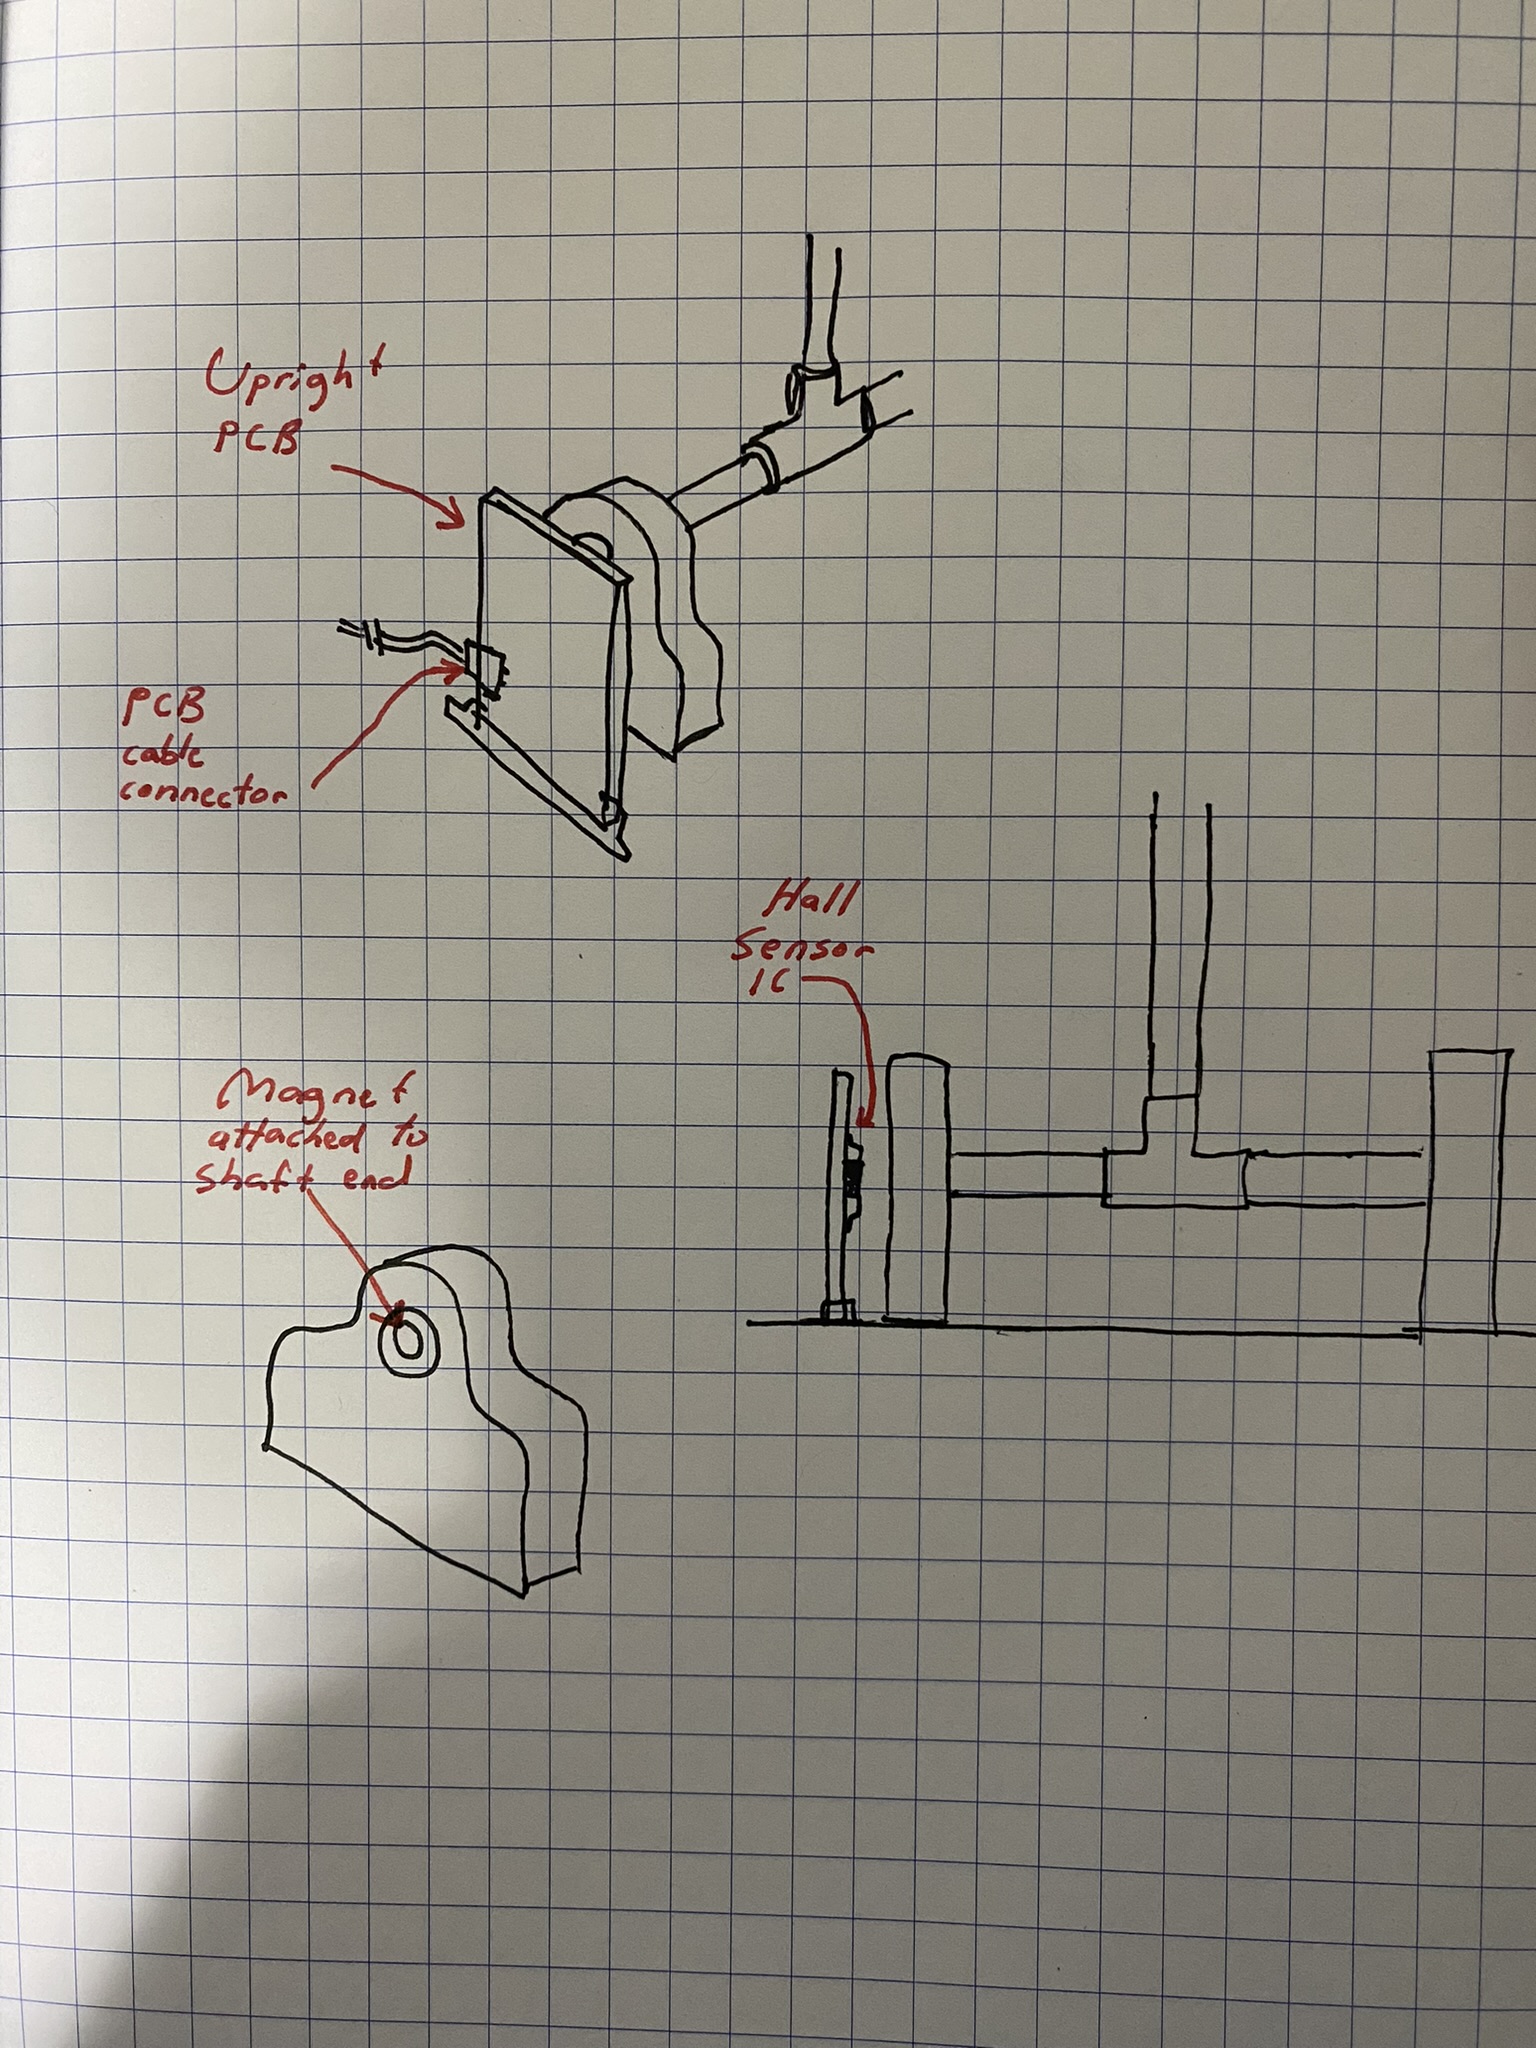 Upright
PCB
PCB
cable
connector
Hall
Sensor
IC
Magnet
attached to
shaft end